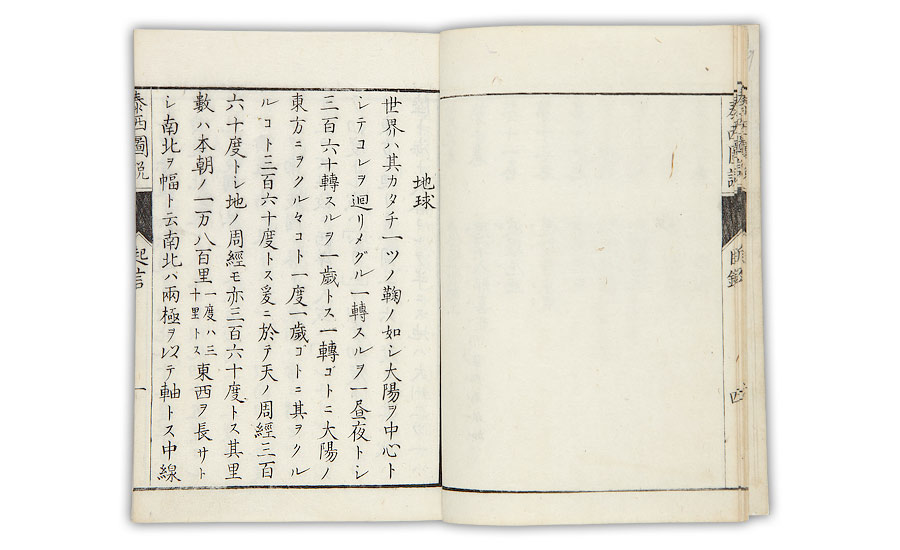 地球
世界ハ其カタチ一ツノ鞠ノ如シ大陽ヲ中心ト
シテコレヲ廻リメグル一轉スルヲ一昼夜トシ
三百六十轉スルヲ一歳トス一轉ゴトニ大陽ノ
東方ニヲクルヽコト一度一歳ゴトニ其ヲクル
ルコト三百六十度トス爰ニ於テ天ノ周經三百
六十度トシ地ノ周經モ亦三百六十度トス其里
數ハ本朝ノ一万八百里一度ハ三十里トス東西ヲ長サト
シ南北ヲ幅ト云南北ハ兩極ヲ以テ軸トス中線
泰西圖説
起言
一